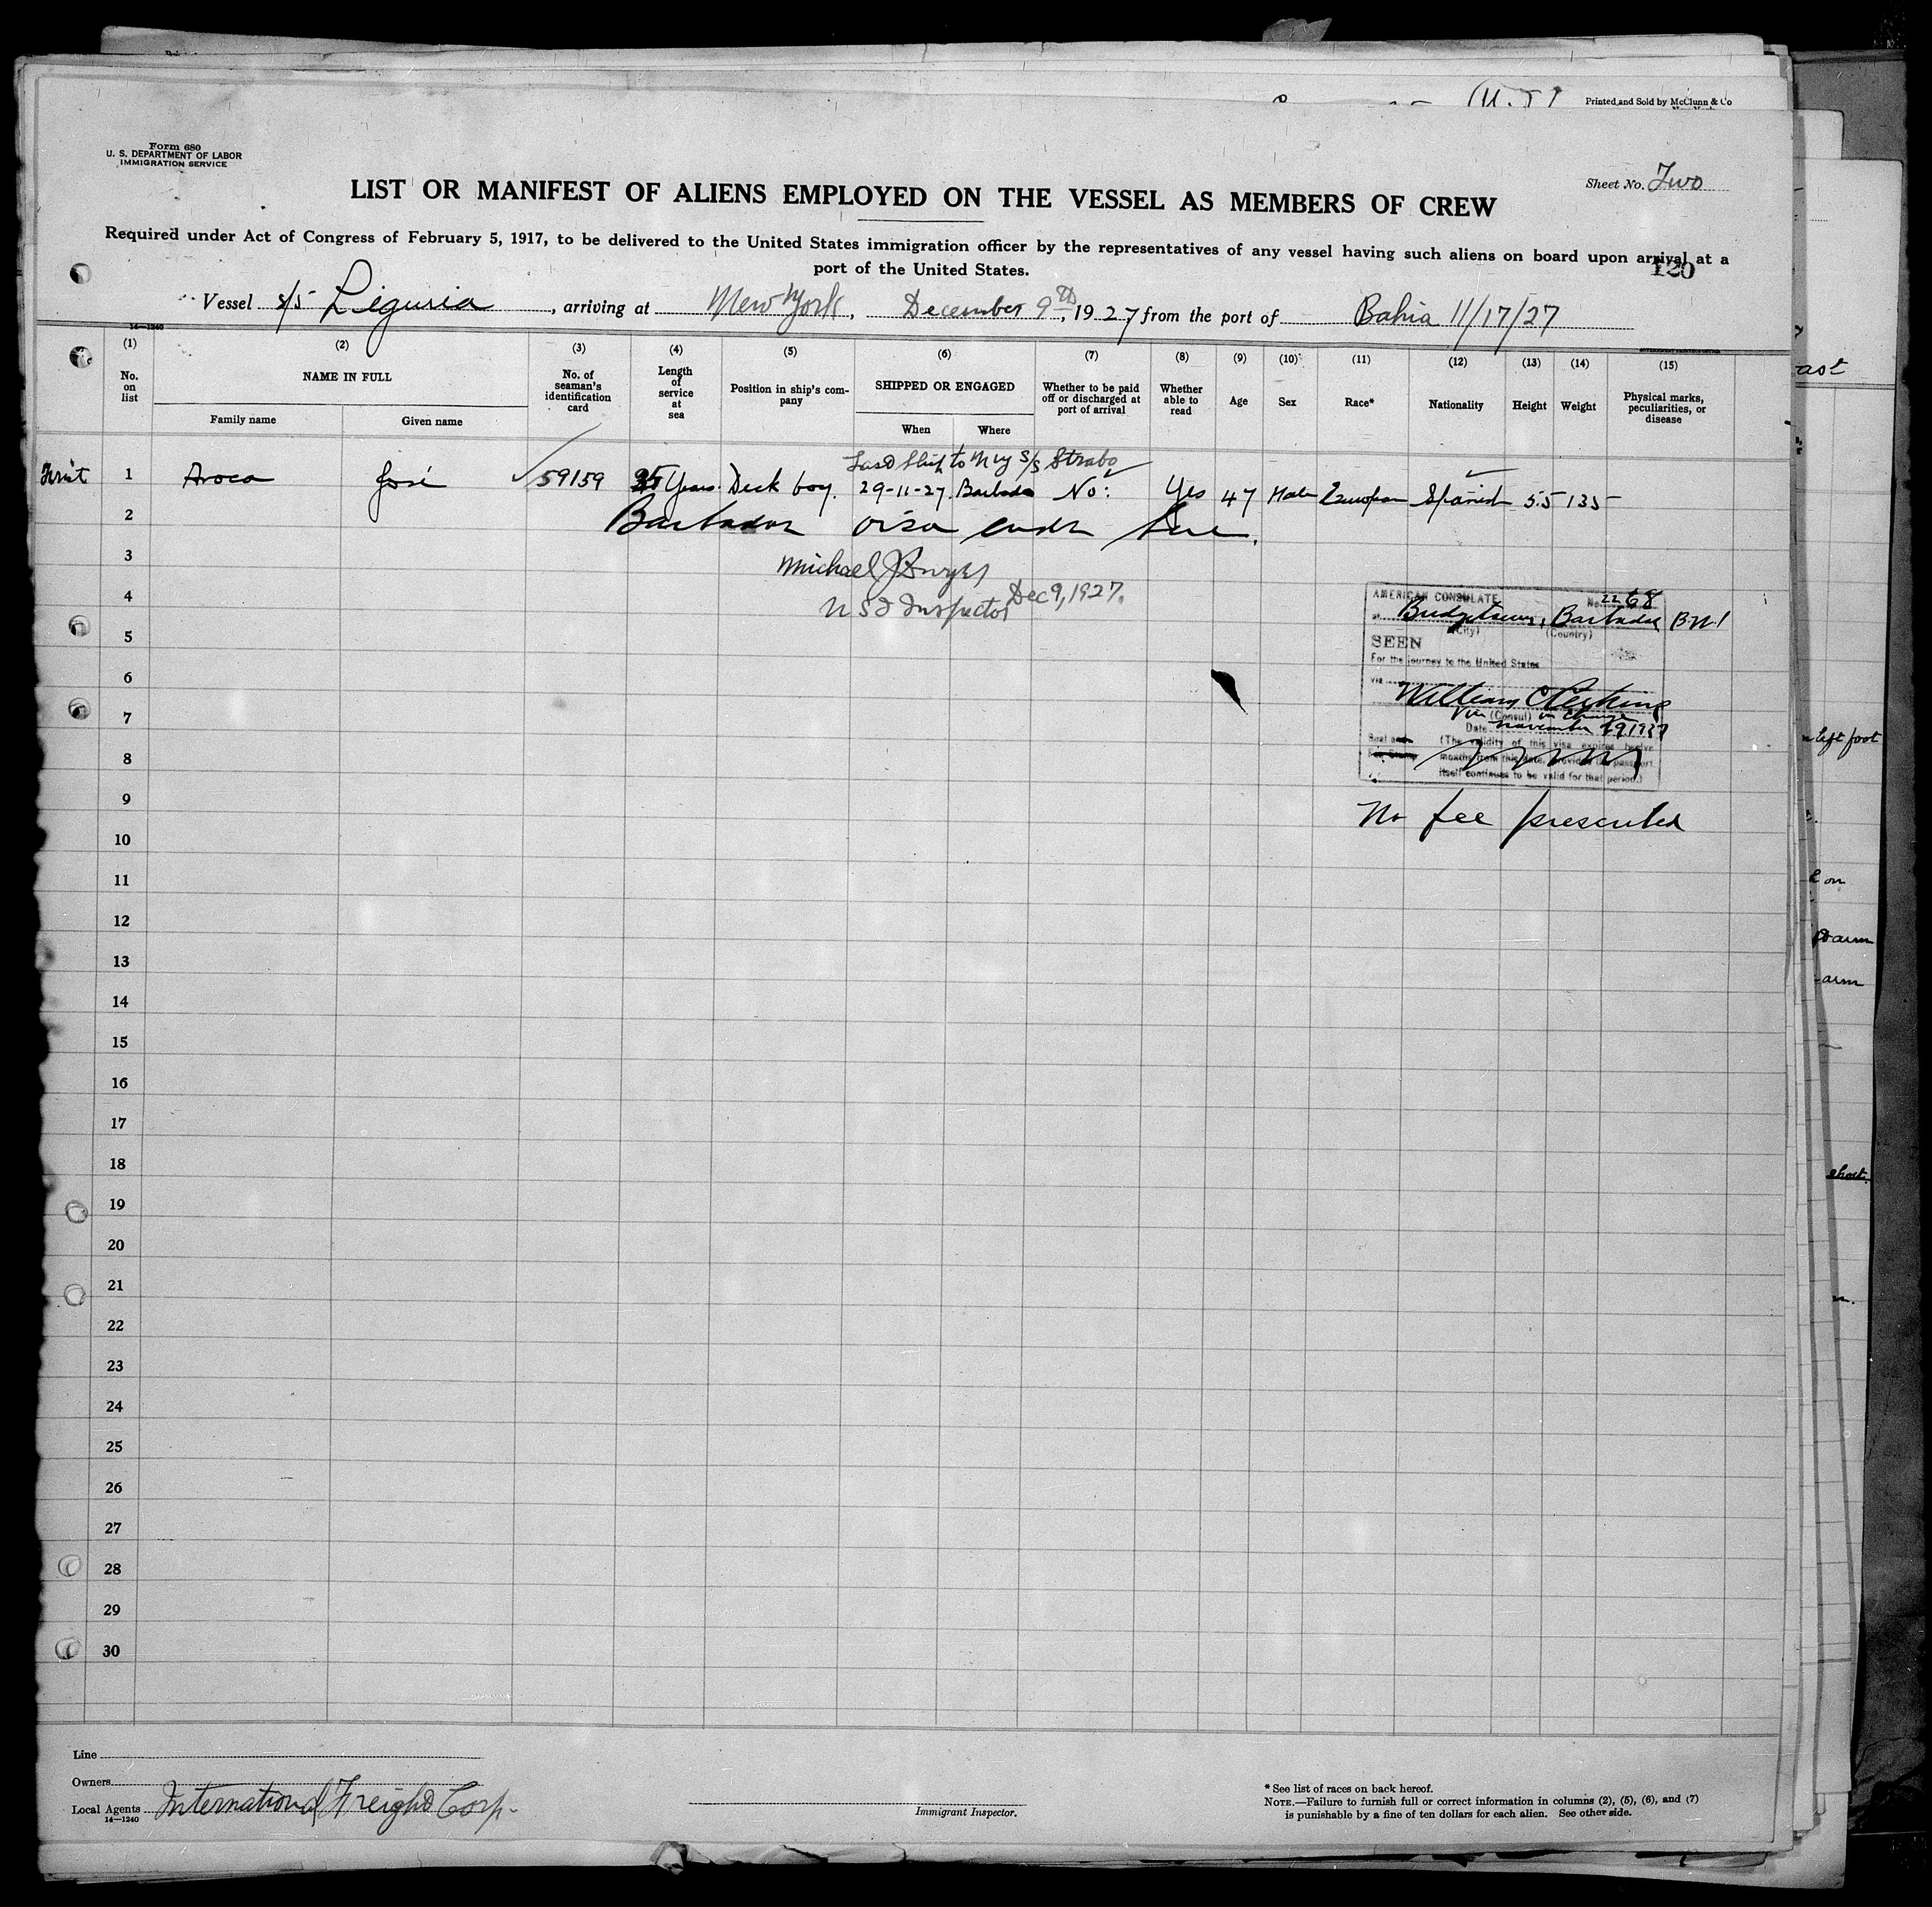 Printed and Sold by McClunn & Co
Form 680
U. S. DEPARTMENT OF LABOR
IMMIGRATION SERVICE
Sheet No. Two
LIST OR MANIFEST OF ALIENS EMPLOYED ON THE VESSEL AS MEMBERS OF CREW
Required under Act of Congress of February 5, 1917, to be delivered to the United States immigration officer by the representatives of any vessel having such aliens on board upon arrival at a
port of the United States.
120
Vessel S/S Liguria, arriving at New York, December 9th, 1927 from the port of Bahia 11/17/27
14—1240
(1) (2) (3) (4) (5) (6) (7) (8) (9) (10) (11) (12) (13) (14) (15)
No. on list
NAME IN FULL
Family name Given name
No. of seaman's identification card
Length of service at sea
Position in ship's company
SHIPPED OR ENGAGED
When Where
Whether to be paid off or discharged at port of arrival
Whether able to read
Age
Sex
Race*
Nationality
Height
Weight
Physical marks, peculiarities, or disease
Last Ship to N Y S/S Strabo
First 1 Aroca José 59159 Years Deck boy. 29-11-27. Barbados No: Yes 47 Male European Spanish 5.5 135
2 Barbados visa
3 Michael J Dwyer
4 U S I Inspector Dec 9, 1927.
AMERICAN CONSULATE No. 2268
at Bridgetown, Barbados B.W.I
(City) (Country)
5
SEEN
For the journey to the United States
6
via
William C Perkins
7
Vice (Consul) in charge
Date November 29 1927
8
Seal and Fee Stamp
(The validity of this visa expires twelve
months from this date, provided the passport
itself continues to be valid for that period.)
9
No fee presented
10
11
12
13
14
15
16
17
18
19
20
21
22
23
24
25
26
27
28
29
30
ast
left foot
on
arm
arm
short.
Line
Owners
Local Agents International Freight Corp.
14—1240
Immigrant Inspector.
* See list of races on back hereof.
NOTE.—Failure to furnish full or correct information in columns (2), (5), (6), and (7)
is punishable by a fine of ten dollars for each alien. See other side.